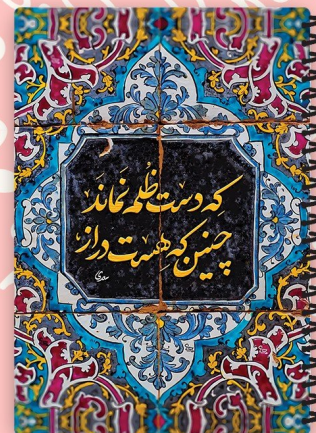 که دست ظلم نَمانَد
چنین که هست دراز
سعدی